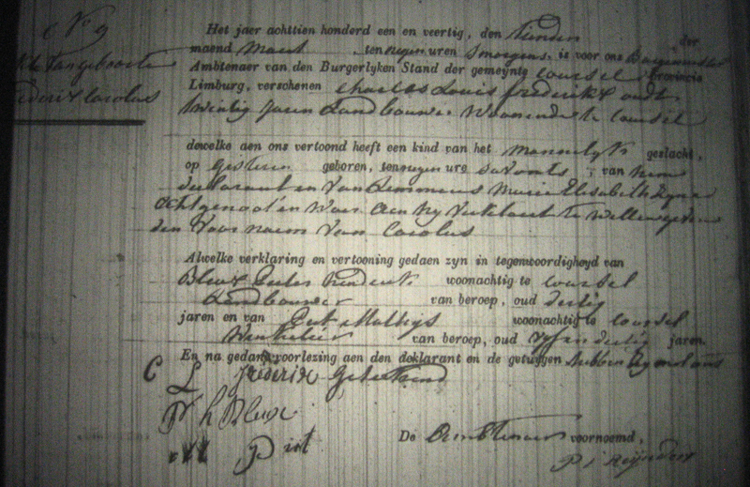 N 9
Akte Van geboorte
Frederix Carolus
Het jaer achttien honderd een en veertig, den tienden der
maend Maert, ten negen uren smorgens, is voor ons Burgemeester
Ambtenaer van den Burgerlyken Stand der gemeynte Coursel Provincie
Limburg, verschenen Charles Louis frederikx oudt
twintig Jaren Landbouwer Woonende te Coursel
dewelke aen ons vertoond heeft een kind van het Mannelyk geslacht,
op gisteren geboren, ten negen ure savonts, van hem
declarant en Van Lemmens Marie Elisabeth Zyne
Achtgenoot en Waer aen hy Verklaert te Willen geven
den Voor naem Van Carolus
Alwelke verklaring en vertooning gedaen zyn in tegenwoordigheyd van
Bleux Peeter hendrik woonachtig te Coursel
Landbouwer van beroep, oud dertig
jaren en van Put Mathys woonachtig te Coursel
Winkelier van beroep, oud vyf en dertig jaren.
En na gedane voorlezing aen den deklarant en de getuygen hebben zy met ons
C L frederix Geteekend
P h Bleux
P
De Ambtenaer voornoemd,
P j Reynders